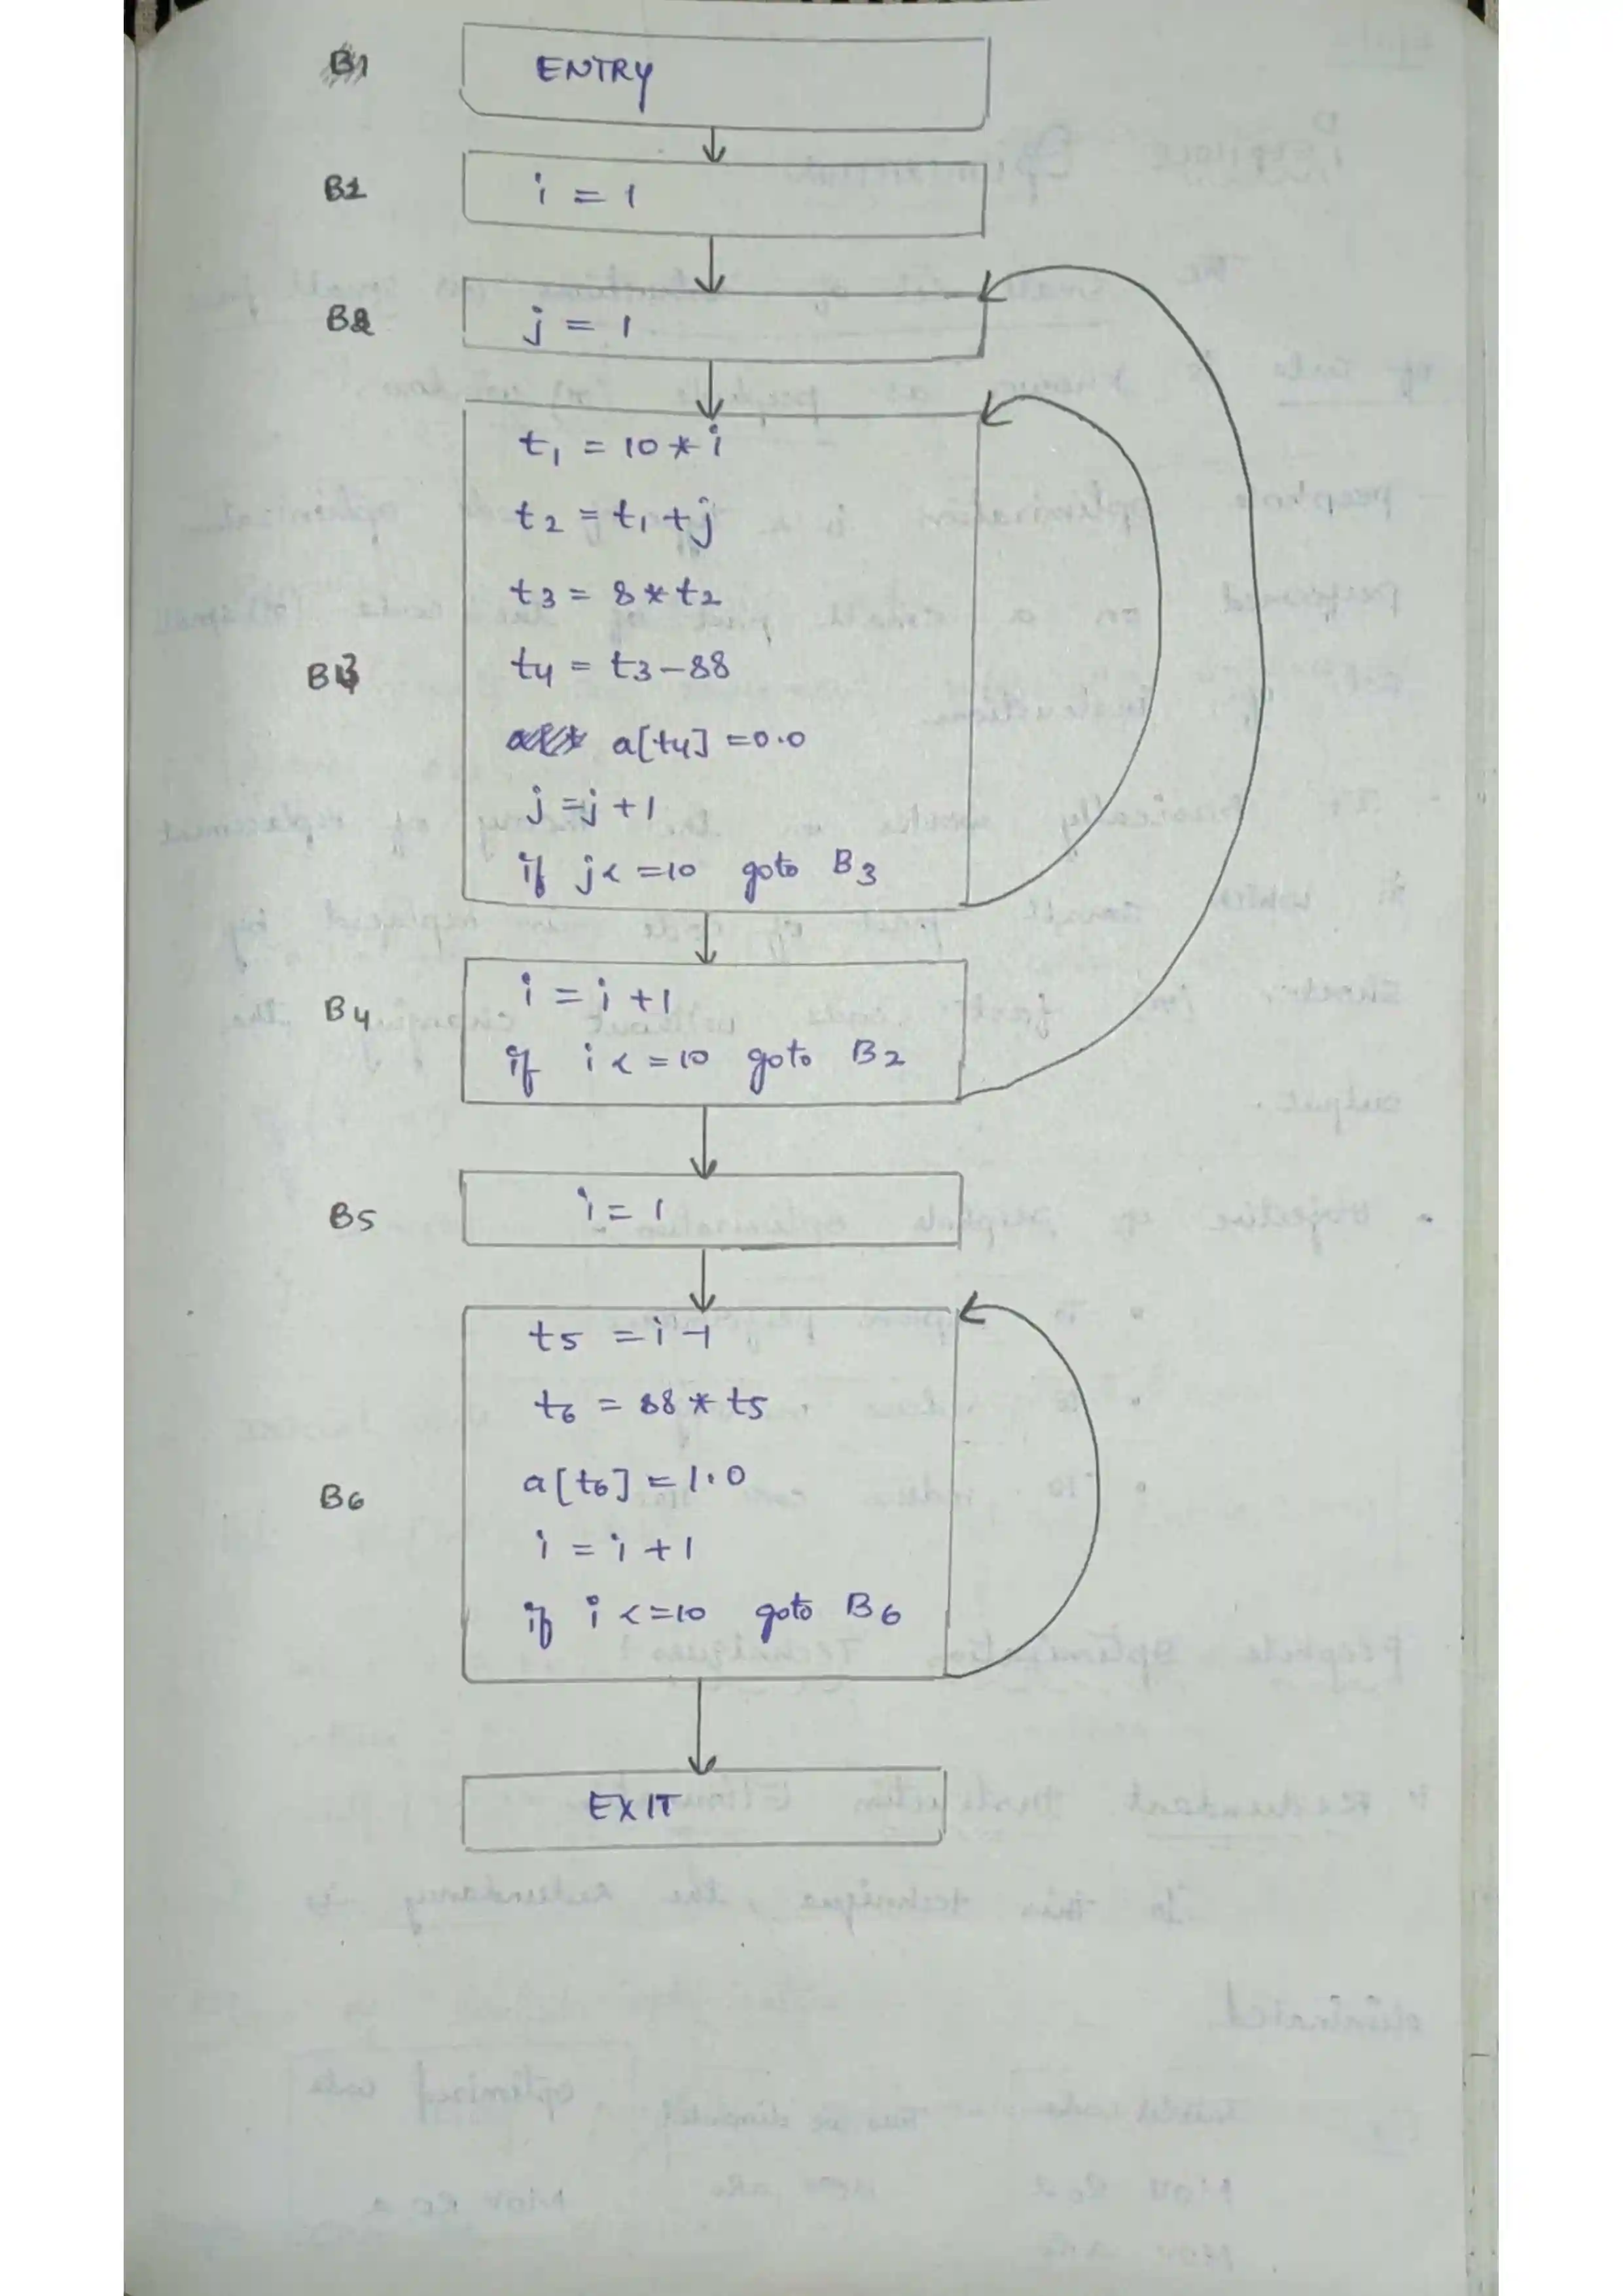 ENTRY
B1 i = 1
B2 j = 1
t1 = 10 * i
t2 = t1 + j
t3 = 8 * t2
B3 t4 = t3 - 88
a[t4] = 0.0
j = j + 1
if j <= 10 goto B3
B4 i = i + 1
if i <= 10 goto B2
B5 i = 1
t5 = i - 1
t6 = 88 * t5
B6 a[t6] = 1.0
i = i + 1
if i <= 10 goto B6
EXIT